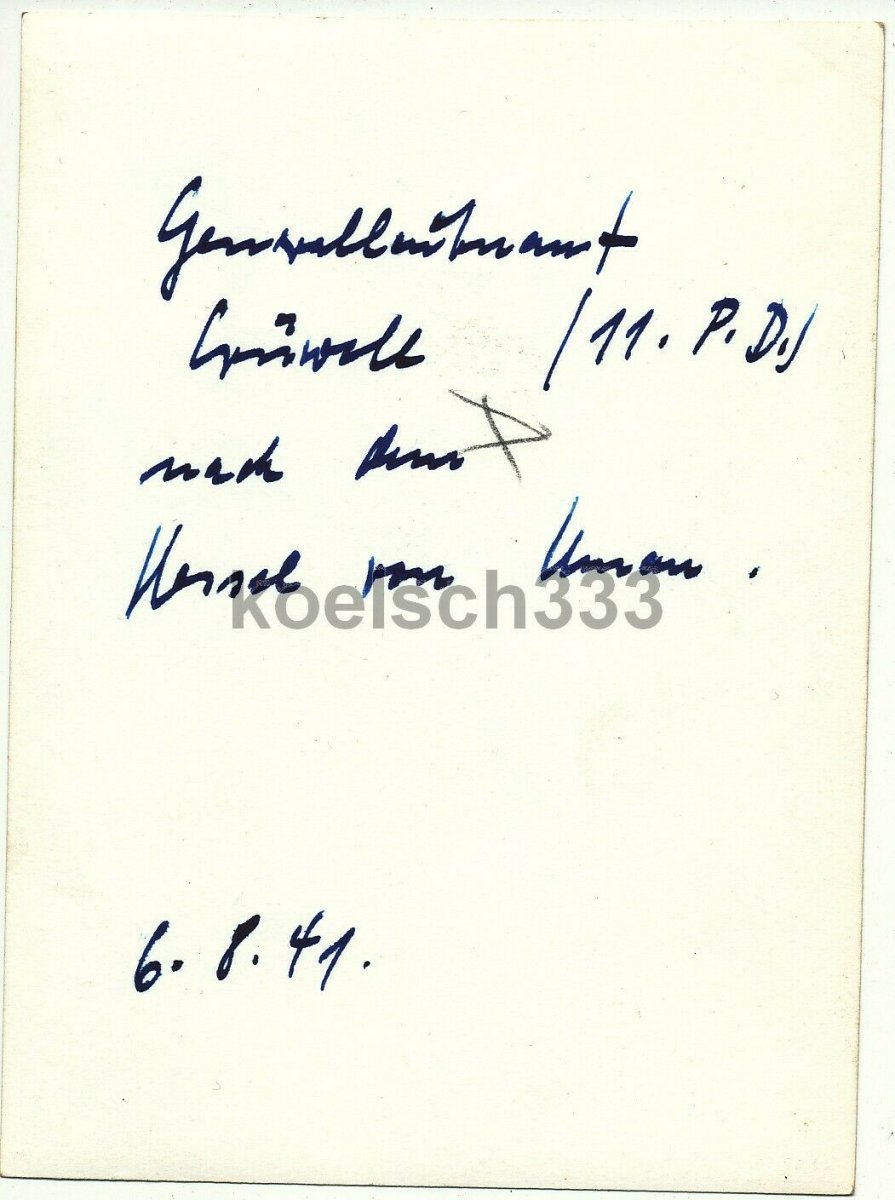 Generalleutnant
Crüwell (11. P.D.)
nach dem
Kessel von Uman.
koelsch333
6. 8. 41.